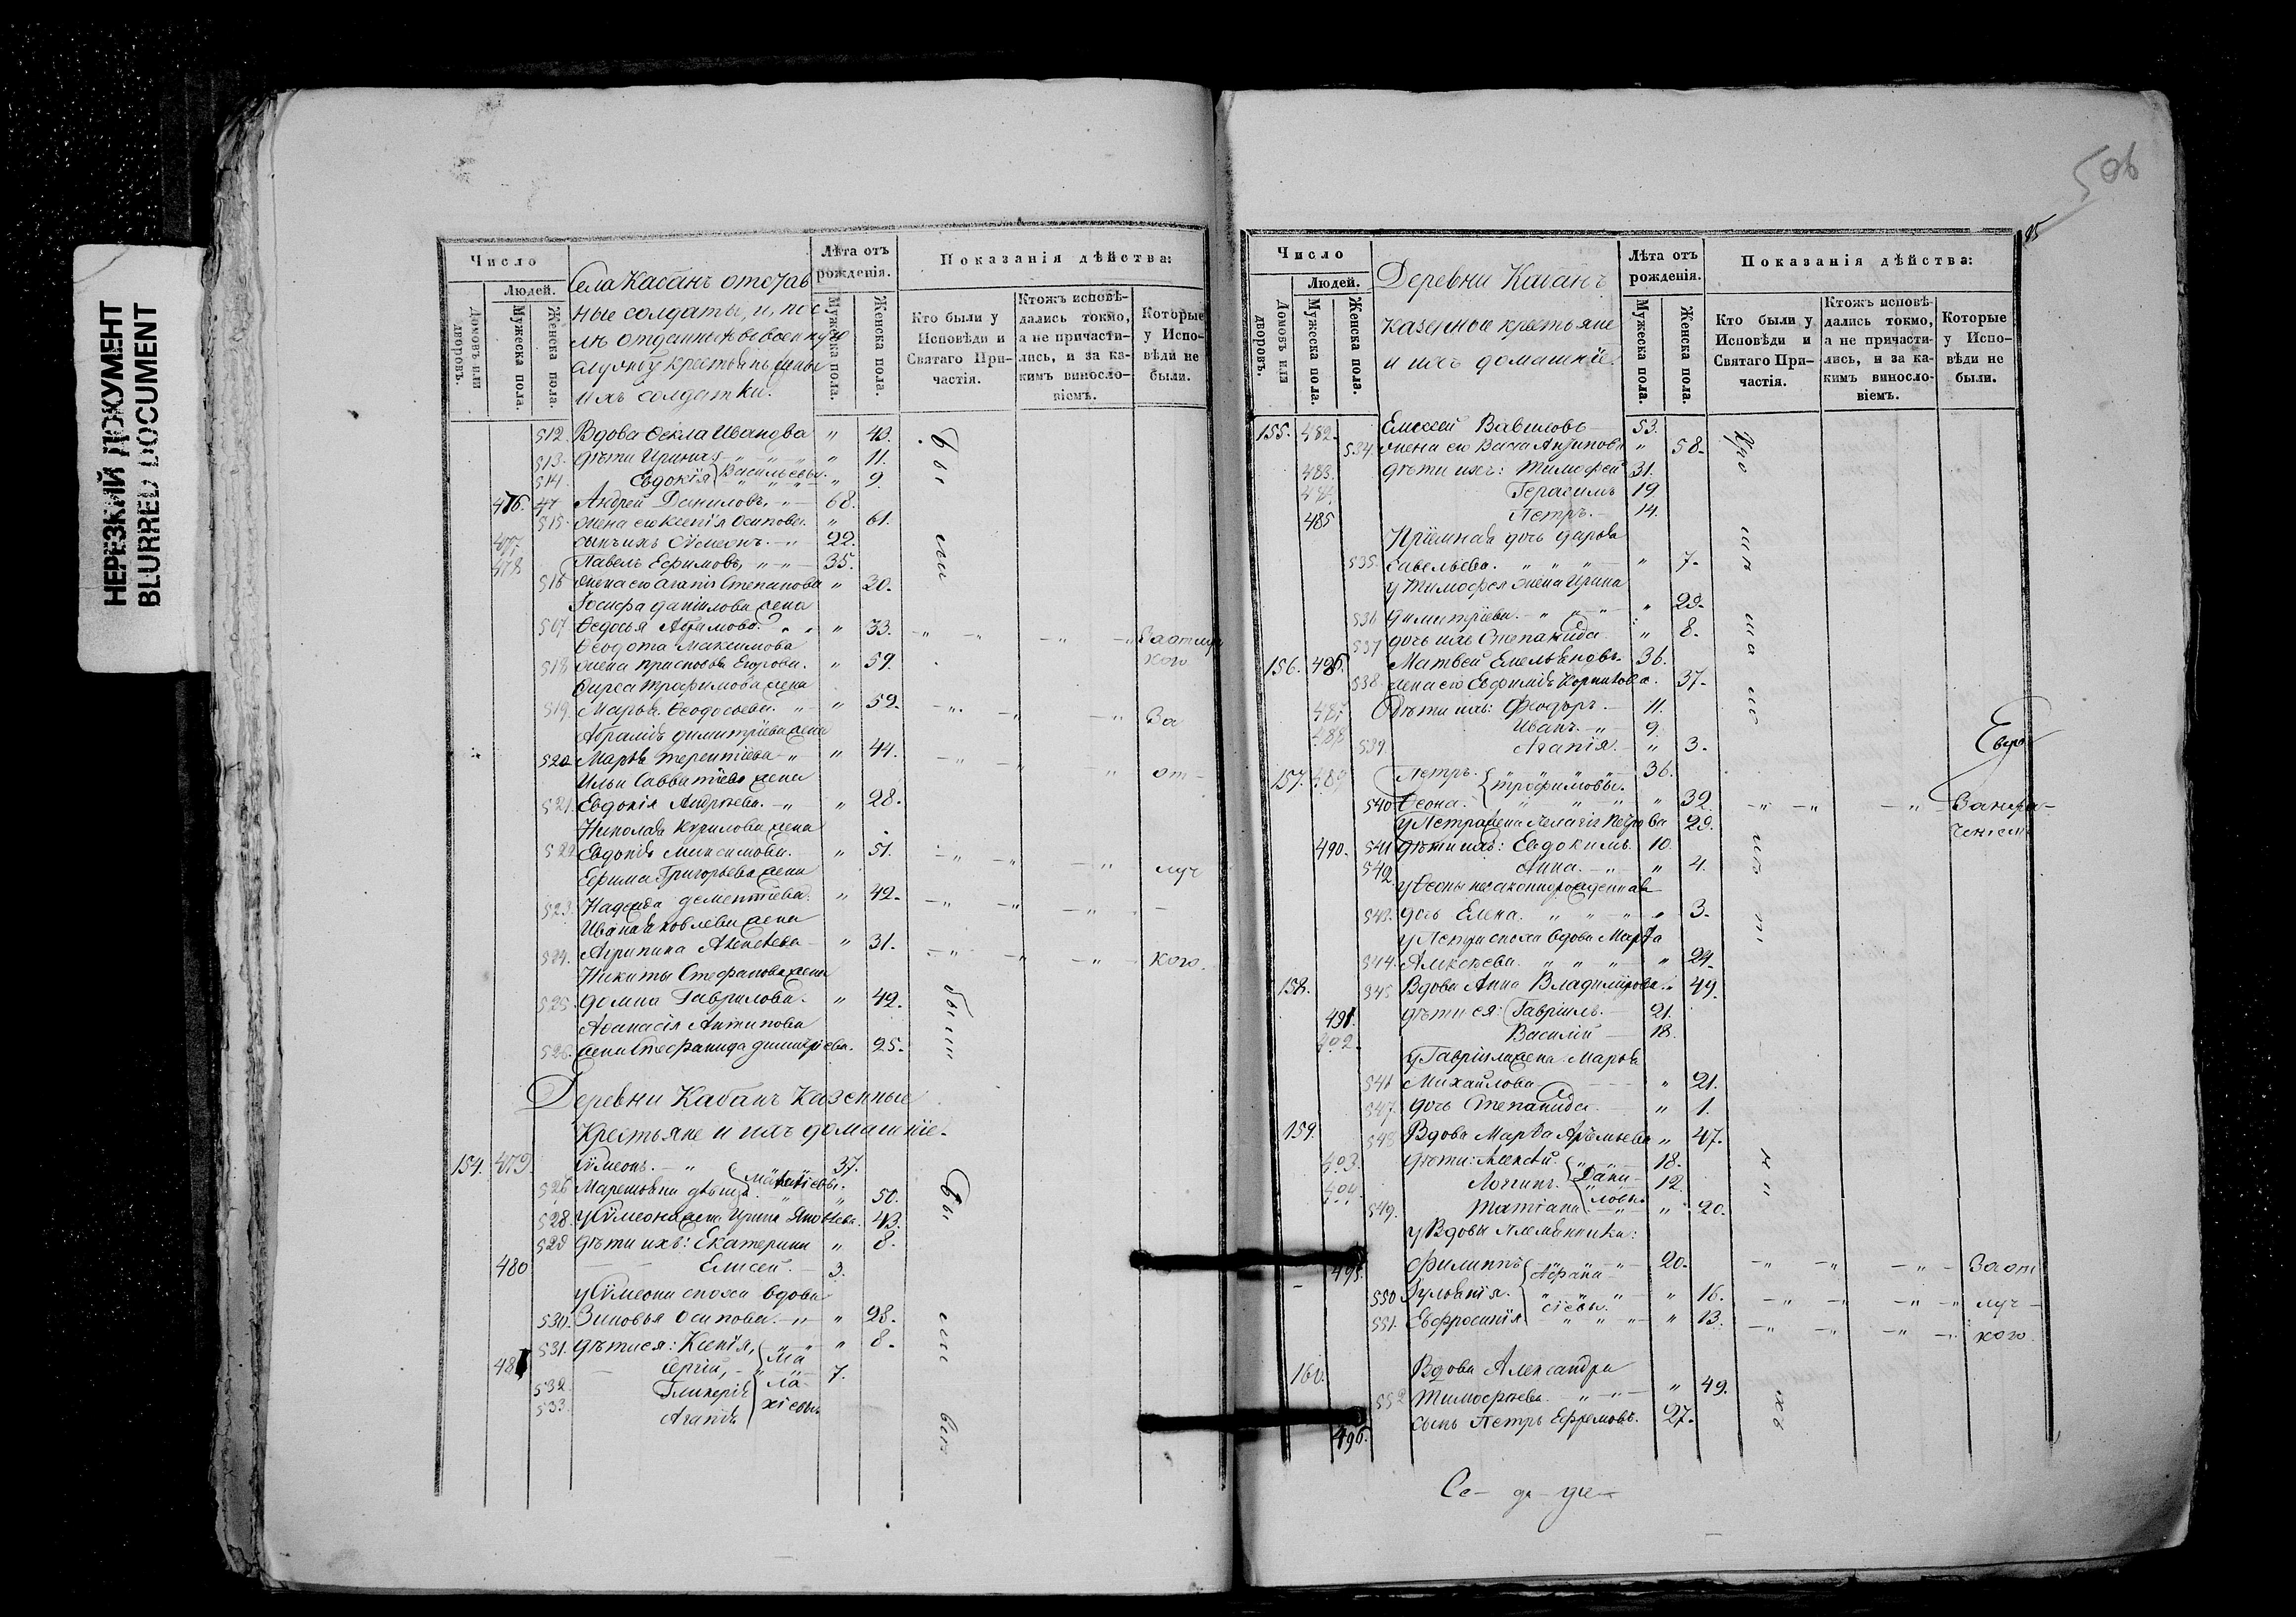 НЕРЕЗКИЙ ДОКУМЕНТ
BLURRED DOCUMENT
Число
Людей.
Домовъ или дворовъ.
Мужеска пола.
Женска пола.
Села Кабанъ отстав
ные солдаты, и, пос
лѣ отданныхъ въ военную
службу крестьянъ жены
ихъ солдатки.
Лѣта отъ рожденія.
Мужеска пола.
Женска пола.
Показанія дѣйства:
Кто были у Исповѣди и Святаго Причастія.
Ктожъ исповѣдались токмо, а не причастились, и за какимъ винословіемъ.
Которые у Исповѣди не были.
512. Вдова Ѳекла Иванова " 43.
513. дѣти Ирина " 11.
514. Евдокія Васильевы. " 9.
476. Андрей Даниловъ 68.
515. жена его Ксенія Осипова. " 61.
477 сынъ ихъ Сѵмеонъ. 22.
478 Павелъ Ефимовъ 35.
516 жена его Агапія Степанова " 30.
Іосифа Даніилова жена
517 Ѳедосья Ефимова. " 33. За отлуч
Ѳеодота Максимова
518 жена Егорова. " 59. кого
Ѳирса Трофимова жена
519. Марѳа Ѳеодосьева. " 52. За
Авраамія Димитріева жена
520 Марѳа Терентіева " 44. от
Ильи Савватіева жена
521. Евдокія Андреева. " 28.
Николая Курилова жена
522 Евдокія Максимова. " 51. луч
Ефима Григорьева жена
523. Надежда Дементіева. " 42.
Ивана Яковлева жена
524. Агрипина Алексѣева " 31. кого.
Никиты Стефанова жена
525. Домна Гаврилова. " 42.
Аѳанасія Антипова
526. жена Стефанида Димитріева. 25.
были
Деревни Кабанъ Казенные
Крестьяне и ихъ домашніе.
154. 479. Сѵмеонъ. 37.
526 50.
528. у Сѵмеона жена Ирина Яковлева. 43.
529 дѣти ихъ: Екатерина " 8.
480 Елисей. 3.
у Сѵмеона сноха вдова
530. Зиновья Осипова. " 28.
531. дѣти ея: Ксенія, " 8.
481 Сергій, 7.
532. Гликерія
533. Агапія
Малахіевы
506
95
Число
Людей.
Домовъ или дворовъ.
Мужеска пола.
Женска пола.
Деревни Кабанъ
казенные крестьяне
и ихъ домашніе.
Лѣта отъ рожденія.
Мужеска пола.
Женска пола.
Показанія дѣйства:
Кто были у Исповѣди и Святаго Причастія.
Ктожъ исповѣдались токмо, а не причастились, и за какимъ винословіемъ.
Которые у Исповѣди не были.
155. 482. Елисей Вавиловъ 53.
534 жена его Васса " 58.
483. дѣти ихъ: Тимофей 31.
484. Герасимъ 19.
485 Петръ. 14.
Пріемная дочь Дарья
535. Савельева. " 7.
у Тимофея жена Ирина
536 Димитріева. " 29.
537 дочь ихъ Степанида " 8.
156. 486. Матвей Емельяновъ. 36.
538 жена его Евфимія Корнилова. 37.
487 Дѣти ихъ: Феодоръ. 11.
488 Иванъ. 9.
539 Агапія. " 3.
157. 489 Петръ. 36.
Трофимовы.
540 Ѳеона. " 32.
у Петра жена Пелагія Петрова 29.
490. 541 дѣти ихъ: Евдокимъ. 10.
542 Анна. " 4.
у Ѳеоны незаконнорожденная
543. дочь Елена. " 3.
у Петра сноха вдова Марѳа
544. Алексѣева. " 24.
158. 545 Вдова Анна Владимірова. 49.
491. дѣти ея: Гавріилъ. 21.
492. Василій 18.
у Гавріила жена Марѳа
546 Михайлова " 21.
547. дочь Степанида. " 1.
159. 548 Вдова Марѳа Артемьева " 47.
493. дѣти: Алексѣй. 18.
494 Логгинъ. 12.
549. Татіана. " 20.
Даниловы
у Вдовы племянники:
495. Филиппъ 20. За от
550 Іуліанія. " 16. луч
551. Евфросинія " 13. кого.
Афанасіевы.
160. Вдова Александра
552 Тимофеева. " 49.
496. сынъ Петръ Ефремовъ. 27.